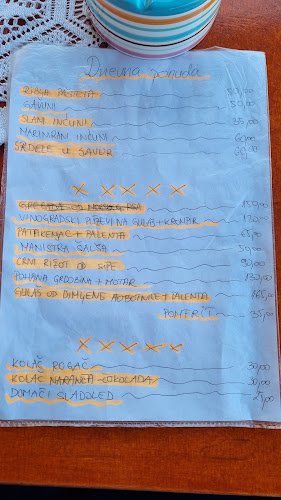 Dnevna ponuda
RIBLJA PAŠTETA 50,00
GAVUNI 50,00
SLANI INĆUNI 35,00
MARINIRANI INĆUNI 60,00
SRDELE U SAVUR
X X X X X
150,00
VINOGRADSKI PUŽEVI NA GULAŠ + KRUMPIR
PATAKENJAC + PALENTA 65,00
MANISTRA ČALŠA 50,00
CRNI RIŽOT OD SIPE 90,00
POHANA GRDOBINA + MOTAR 130,00
GULAŠ OD DIMLJENE HOBOTNICE + PALENTA 165,00
POMFRIT 35,00
X X X X X
KOLAČ POGAČ 30,00
KOLAČ NARANČA-ČOKOLADA 30,00
DOMAĆI SLADOLED 25,00